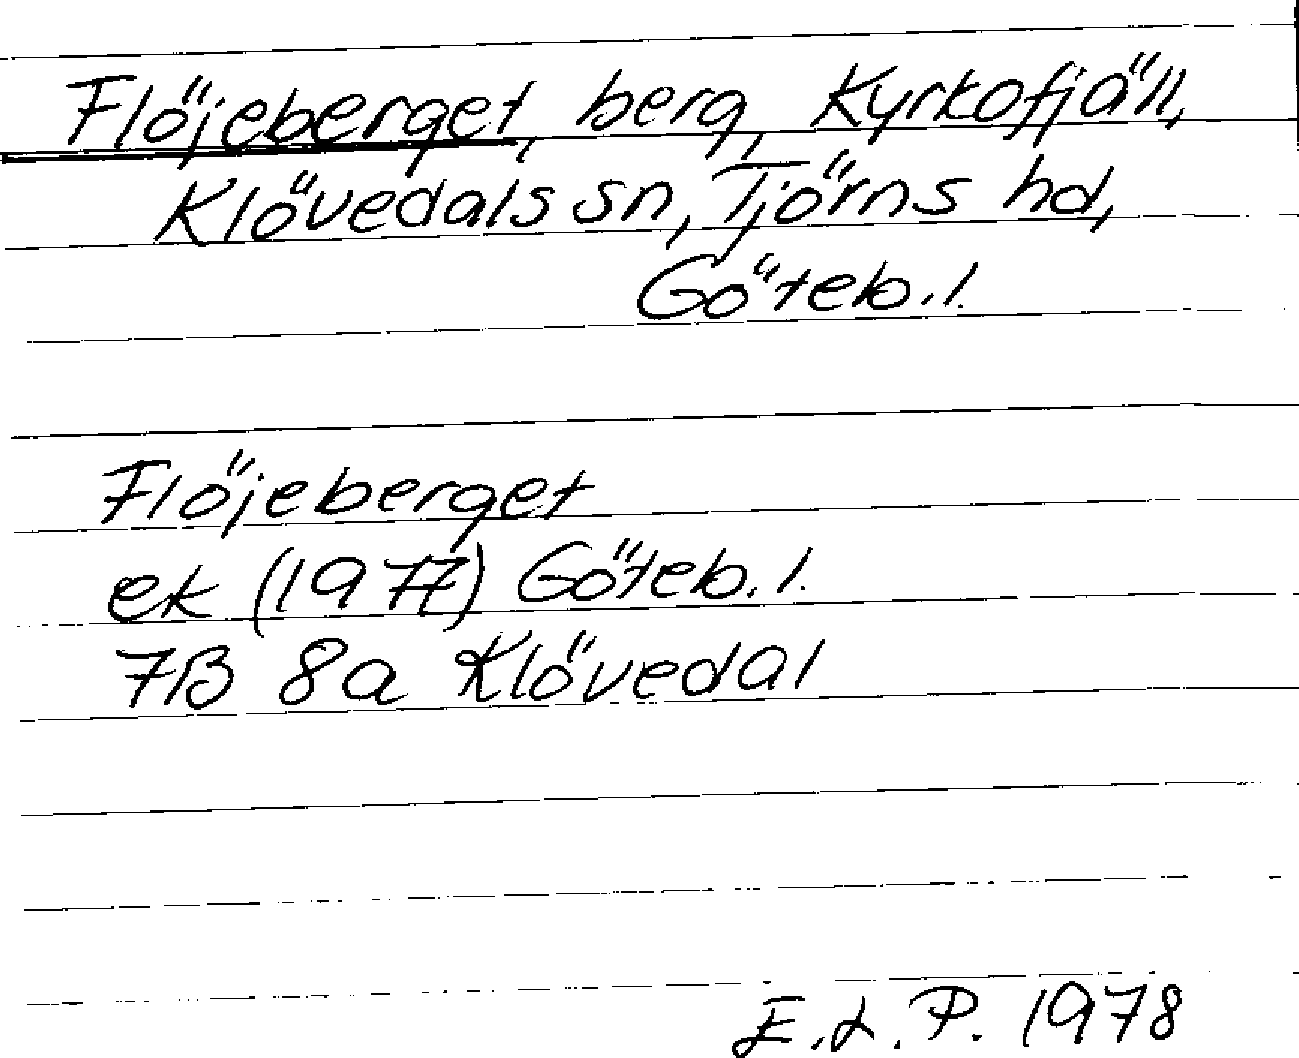 Flöjeberget, berg, Kyrkofjäll,
Klövedals sn, Tjörns hd,
Göteb. l.
Flöjeberget
ek (1977) Göteb. l.
7B 8a Klövedal
E. L. P. 1978